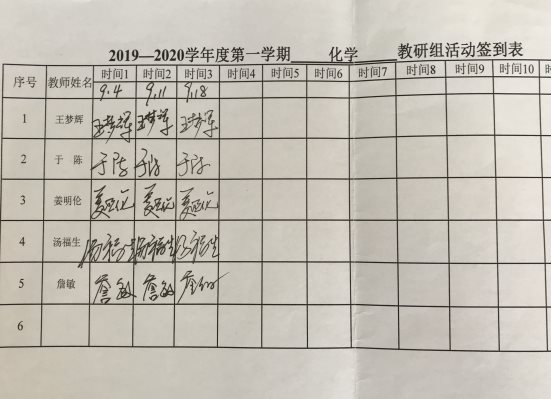 2019—2020学年度第一学期 化学 教研组活动签到表
序号 教师姓名 时间1 时间2 时间3 时间4 时间5 时间6 时间7 时间8 时间9 时间10
9.4 9.11 9.18
1 王梦辉 王梦辉 王梦辉 王梦辉
2 于 陈 于陈 于陈 于陈
3 姜明伦 姜明伦 姜明伦 姜明伦
4 汤福生 汤福生 汤福生 汤福生
5 詹敏 詹敏 詹敏 詹敏
6